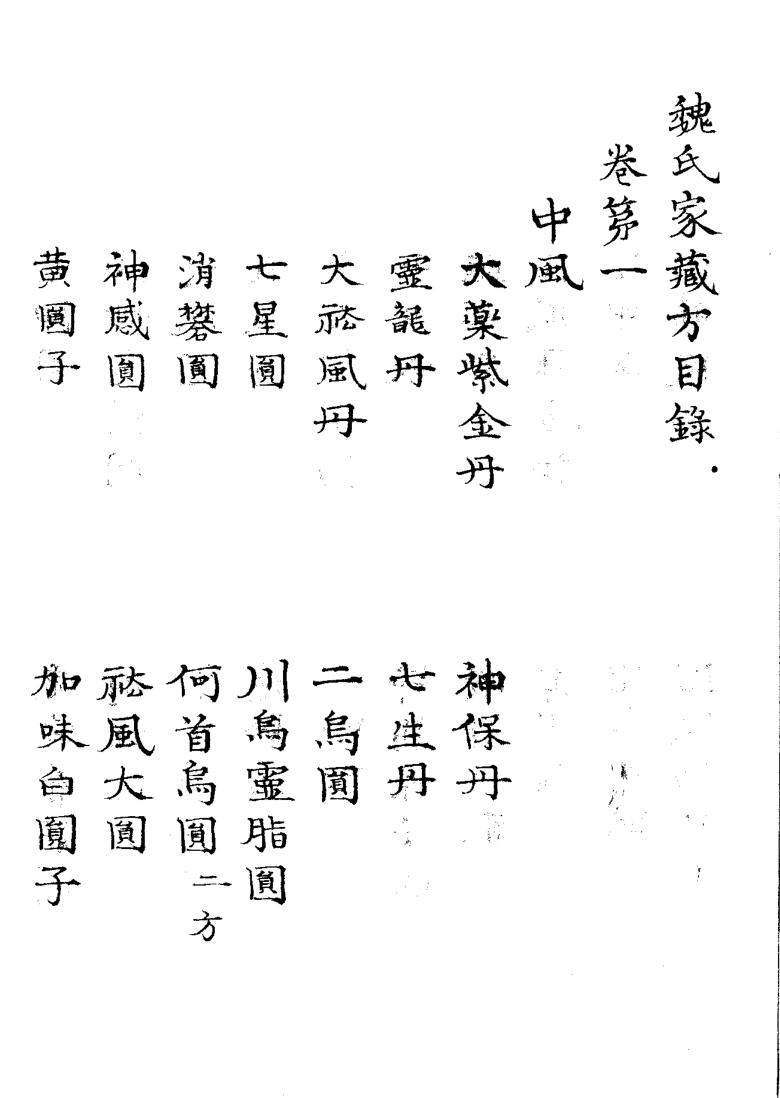 魏氏家藏方目錄
卷苐一
中風
大藥紫金丹 神保丹
靈龍丹 七生丹
大祛風丹 二烏圓
七星圓 川烏靈脂圓
消礬圓 何首烏圓 二方
神感圓 祛風大圓
黃圓子 加味白圓子